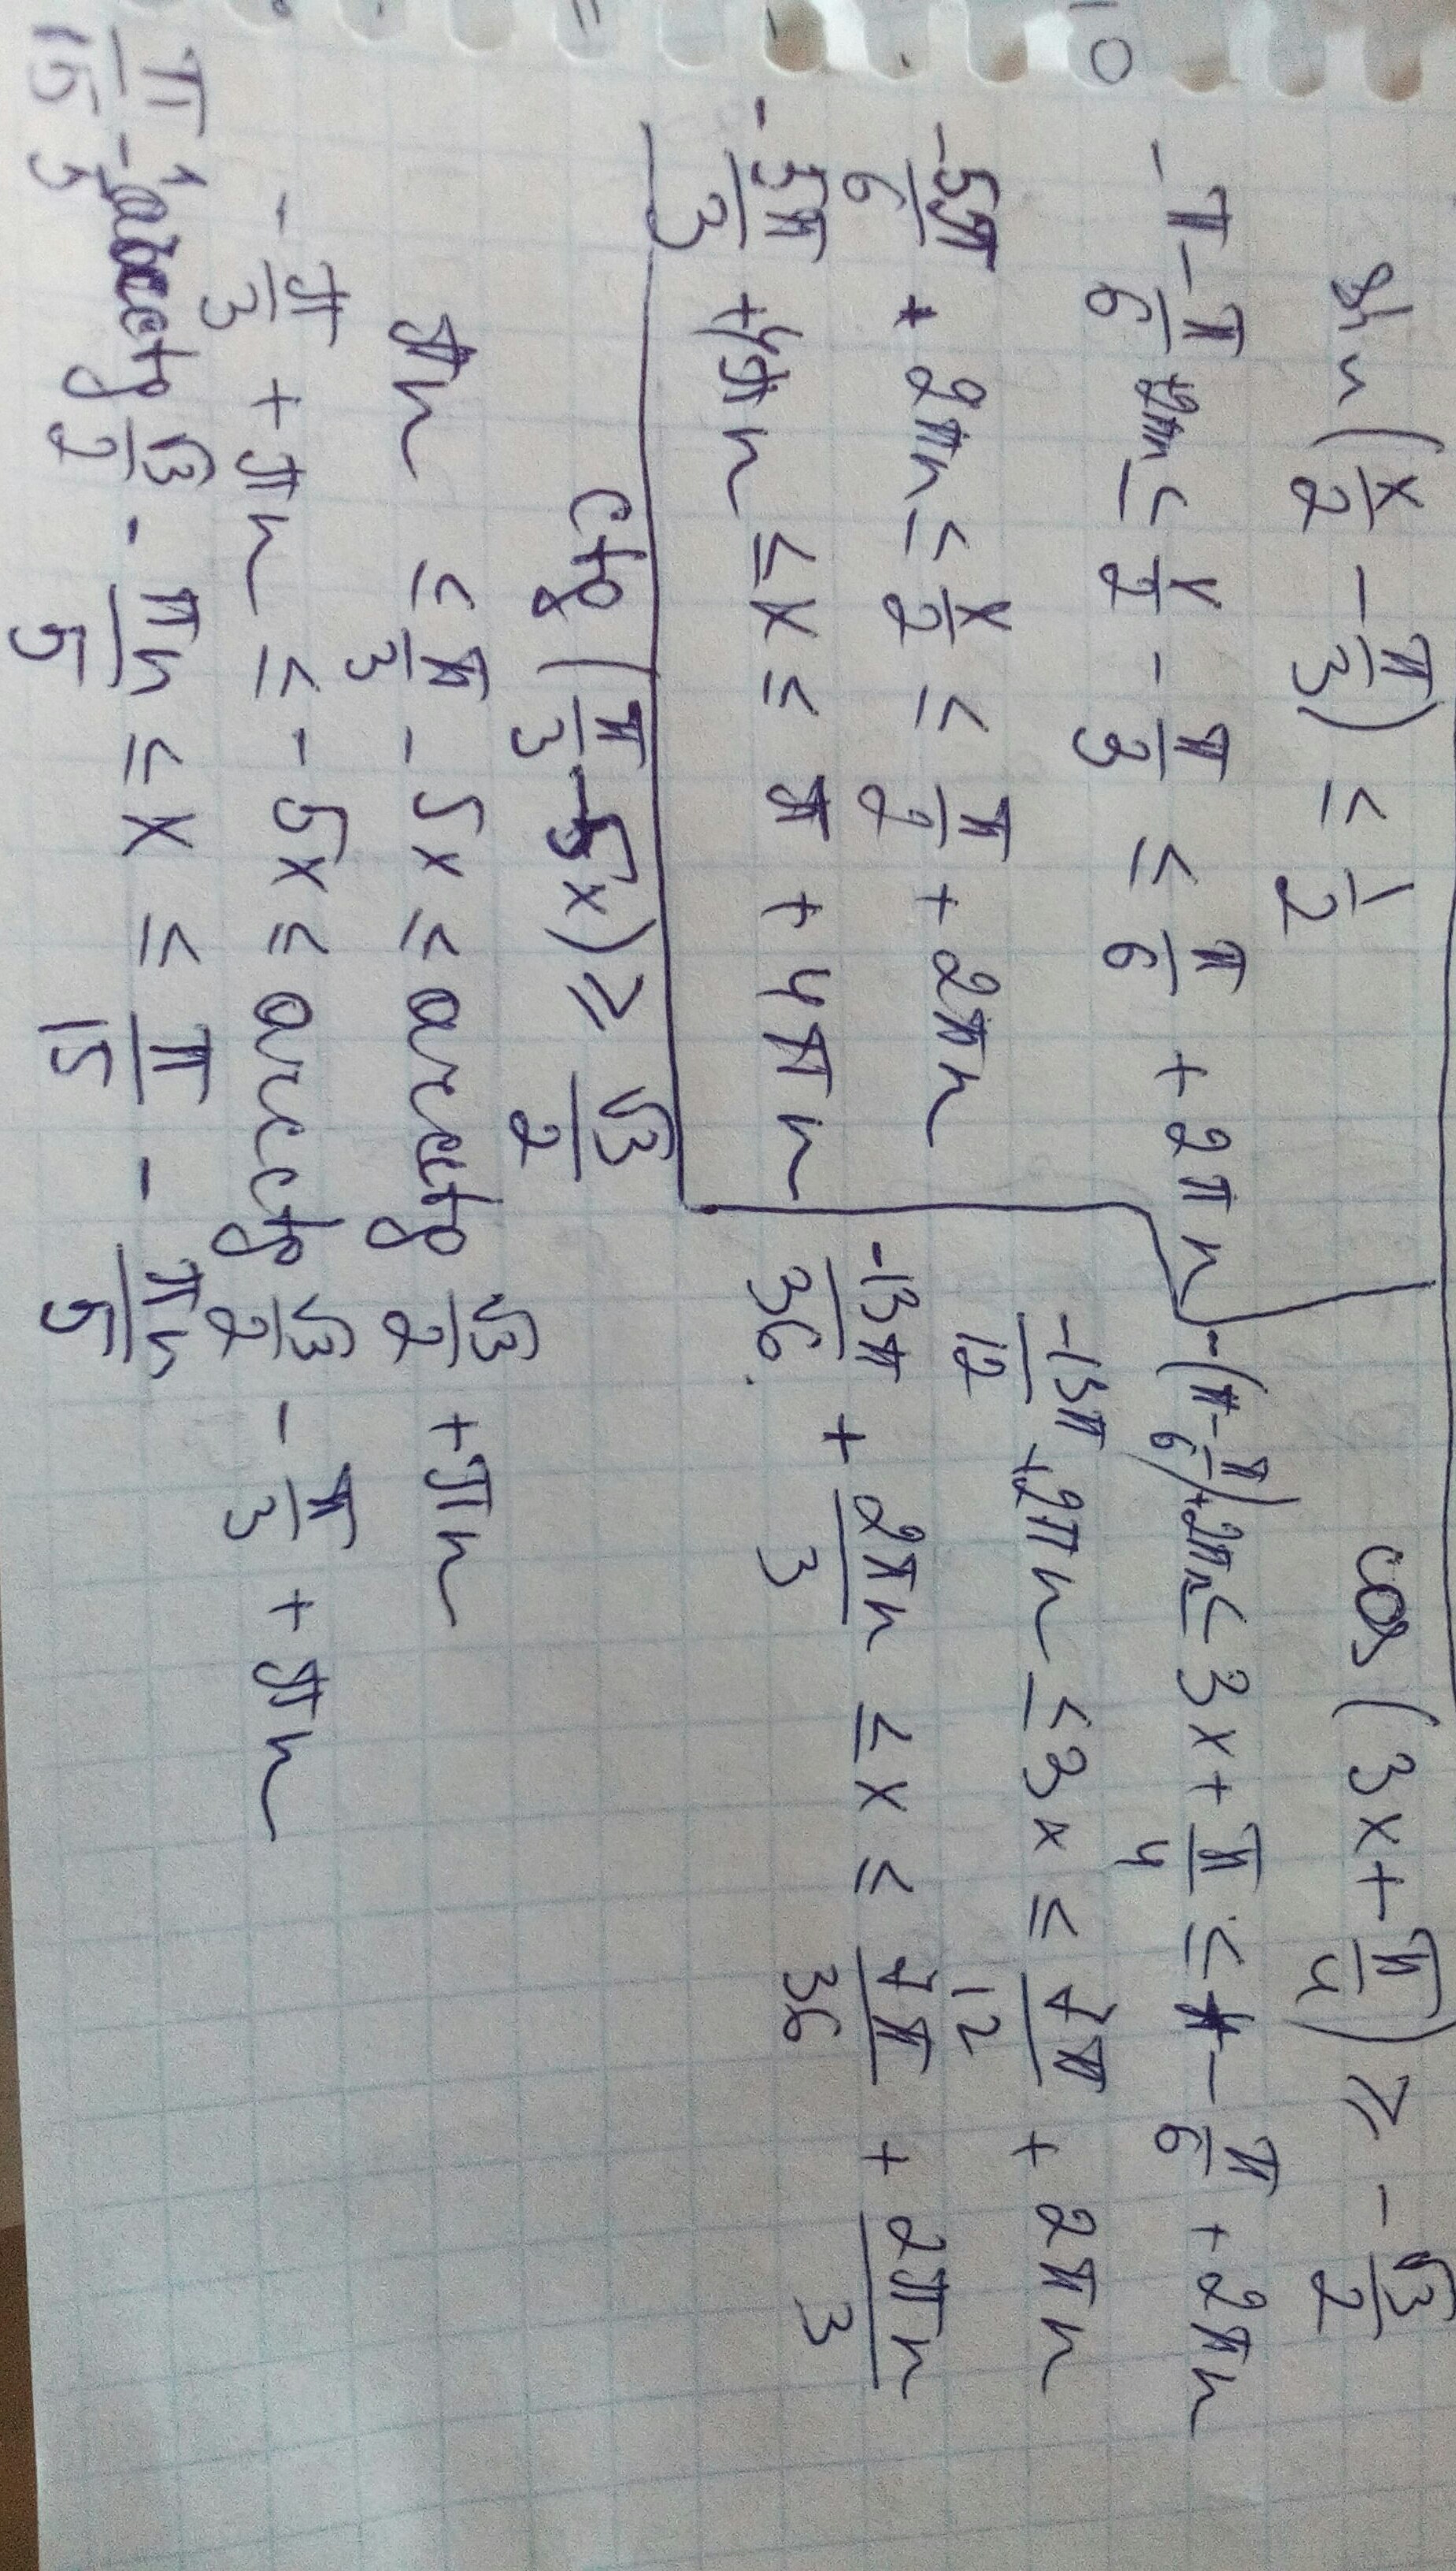 10
sin(x/2 - π/3) ≤ 1/2
-π - π/6 + 2πn ≤ x/2 - π/3 ≤ π/6 + 2πn
-5π/6 + 2πn ≤ x/2 ≤ π/2 + 2πn
-5π/3 + 4πn ≤ x ≤ π + 4πn
cos(3x + π/4) ≥ -√3/2
-(π - π/6) + 2πn ≤ 3x + π/4 ≤ π - π/6 + 2πn
-13π/12 + 2πn ≤ 3x ≤ 7π/12 + 2πn
-13π/36 + 2πn/3 ≤ x ≤ 7π/36 + 2πn/3
ctg(π/3 - 5x) ≥ √3/2
πn ≤ π/3 - 5x ≤ arcctg √3/2 + πn
-π/3 + πn ≤ -5x ≤ arcctg √3/2 - π/3 + πn
π/15 - 1/5 arcctg √3/2 - πn/5 ≤ x ≤ π/15 - πn/5